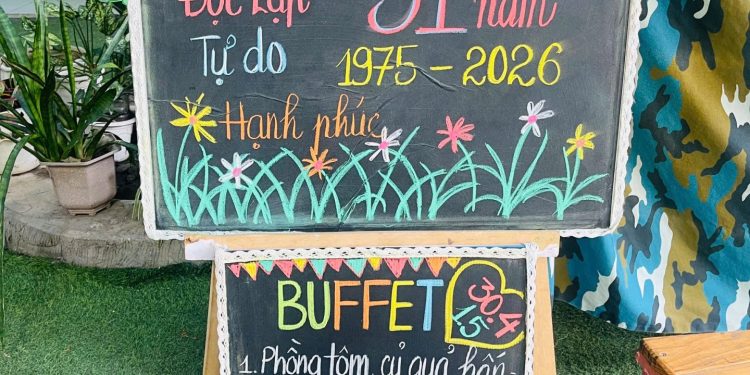 Độc Lập 51 năm
Tự do 1975 - 2026
Hạnh phúc
BUFFET 30.4
1.5
1. Phồng tôm, củ quả hấp